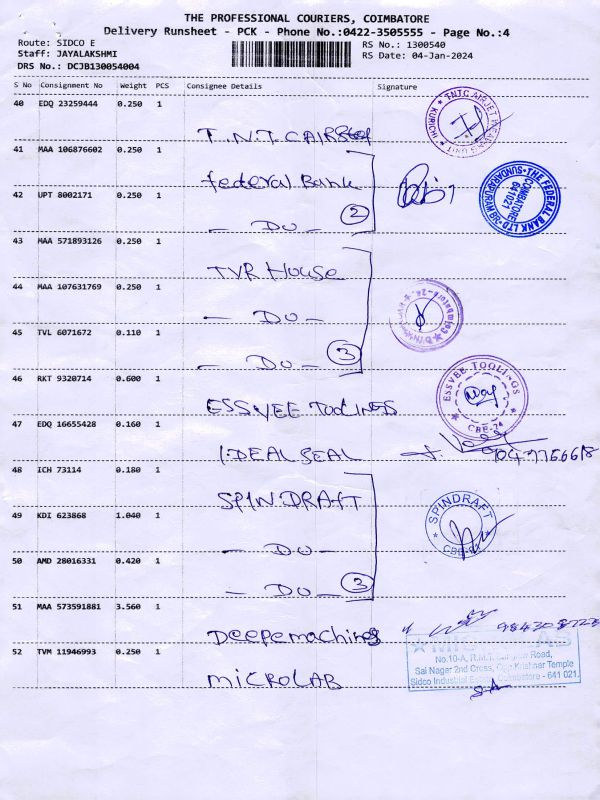 THE PROFESSIONAL COURIERS, COIMBATORE
Delivery Runsheet - PCK - Phone No.:0422-3505555 - Page No.:4
Route: SIDCO E
RS No.: 1300540
Staff: JAYALAKSHMI
RS Date: 04-Jan-2024
DRS No.: DCJB130054004
S No Consignment No Weight PCS Consignee Details Signature
40 EDQ 23259444 0.250 1 T.N.T.C
TNTC AIRJET WEAVING UNIT KURICHI
41 MAA 106876602 0.250 1 federal Bank
42 UPT 8002171 0.250 1 — DO — 2
THE FEDERAL BANK LTD
SUNDARAPURAM BR
COIMBATORE
641021
43 MAA 571893126 0.250 1 TVR House
44 MAA 107631769 0.250 1 — DO —
Coimbatore-24
45 TVL 6071672 0.110 1 — DO — 3
46 RKT 9320714 0.600 1 ESSVEE TOOLINGS
ESSVEE TOOLINGS
CBE-24
47 EDQ 16655428 0.160 1 IDEAL SEAL
48 ICH 73114 0.180 1 SPINDRAFT
49 KDI 623868 1.040 1 — DO —
SPINDRAFT
50 AMD 28016331 0.420 1 — DO — 3
51 MAA 573591881 3.560 1 Deepemachines
52 TVM 11946993 0.250 1 MICROLAB
No.10-A, R.M.T. Road,
Sai Nagar 2nd Cross, Opp Krishnar Temple
Sidco Industrial Estate, Coimbatore - 641 021.